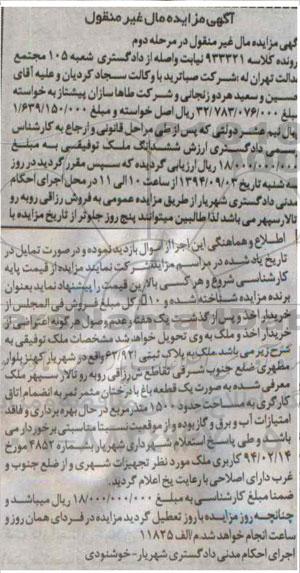 آگهی مزایده مال غیر منقول
آگهی مزایده مال غیر منقول در مرحله دوم
پرونده کلاسه ۹۳۳۳۲۱ نیابت واصله از دادگستری شعبه ۱۰۵ مجتمع
عدالت تهران له :شرکت صباترید با وکالت سجاد کردیان و علیه آقای
حسین و سعید هر دو زنجانی و شرکت طاها سازان پیشتاز به خواسته
مبلغ ۳۲/۷۸۳/۰۷۶/۰۰۰ ریال اصل خواسته و مبلغ ۱/۶۳۹/۱۵۰/۰۰۰
ریال نیم عشر دولتی که پس از طی مراحل قانونی و ارجاع به کارشناس
رسمی دادگستری ارزش ششدانگ ملک توقیفی به مبلغ
۱۸/۰۰۰/۰۰۰/۰۰۰ ریال ارزیابی گردیده که سپس مقرر گردید در روز
سه شنبه تاریخ ۱۳۹۴/۰۹/۰۳ از ساعت ۱۰ الی ۱۱ در محل اجرای احکام
مدنی دادگستری شهریار از طریق مزایده عمومی به فروش رزقی روبه رو
تالار سپهر می باشد لذا طالبین میتوانند پنج روز جلوتر از تاریخ مزایده با
اطلاع و هماهنگی این اجرا از اموال بازدید نموده و در صورت تمایل در
تاریخ یاد شده در مراسم مزایده شرکت نمایند مزایده از قیمت پایه
کارشناسی شروع و هر کسی بالاترین قیمت را پیشنهاد نماید بعنوان
برنده مزایده شناخته شده و ۱۰٪ کل مبلغ فروش فی المجلس از
خریدار اخذ و پس از گذشت یک هفته و عدم وصول هر گونه اعتراضی از
خریدار اخذ و ملک به وی تحویل خواهد شد مشخصات ملک توقیفی به
شرح زیر می باشد ملک به پلاک ثبتی ۶۲/۹۲۱ واقع در شهریار کهنز بلوار
مطهری ضلع جنوب شرقی تقاطع ش رزاقی روبه رو تالار سپهر ملک
معرفی شده به صورت یک قطعه باغ با درختان مثمر ثمر به انضمام اتاق
کارگری به مساحت حدود ۱۵۰۰ متر مربع در حال بهره برداری و فاقد
امتیازات آب و برق و گاز بوده و از موقعیت نسبتا مناسبتی برخوردار می
باشد و طی پاسخ استعلام شهرداری شهریار بشماره ۴۸۵۲ مورخ
۹۴/۰۲/۱۴ کاربری ملک مورد نظر تجهیزات شهری و از ضلع جنوب و
غرب دارای اصلاحی با رعایت پخ اعلام گردید.
ضمنا مبلغ کارشناسی به مبلغ ۱۸/۰۰۰/۰۰۰/۰۰۰ ریال میباشد و
چنانچه روز مزایده با روز تعطیل گردید مزایده در فردای همان روز و
ساعت انجام خواهد شد م/الف ۱۱۸۲۵
اجرای احکام مدنی دادگستری شهریار- خوشنودی